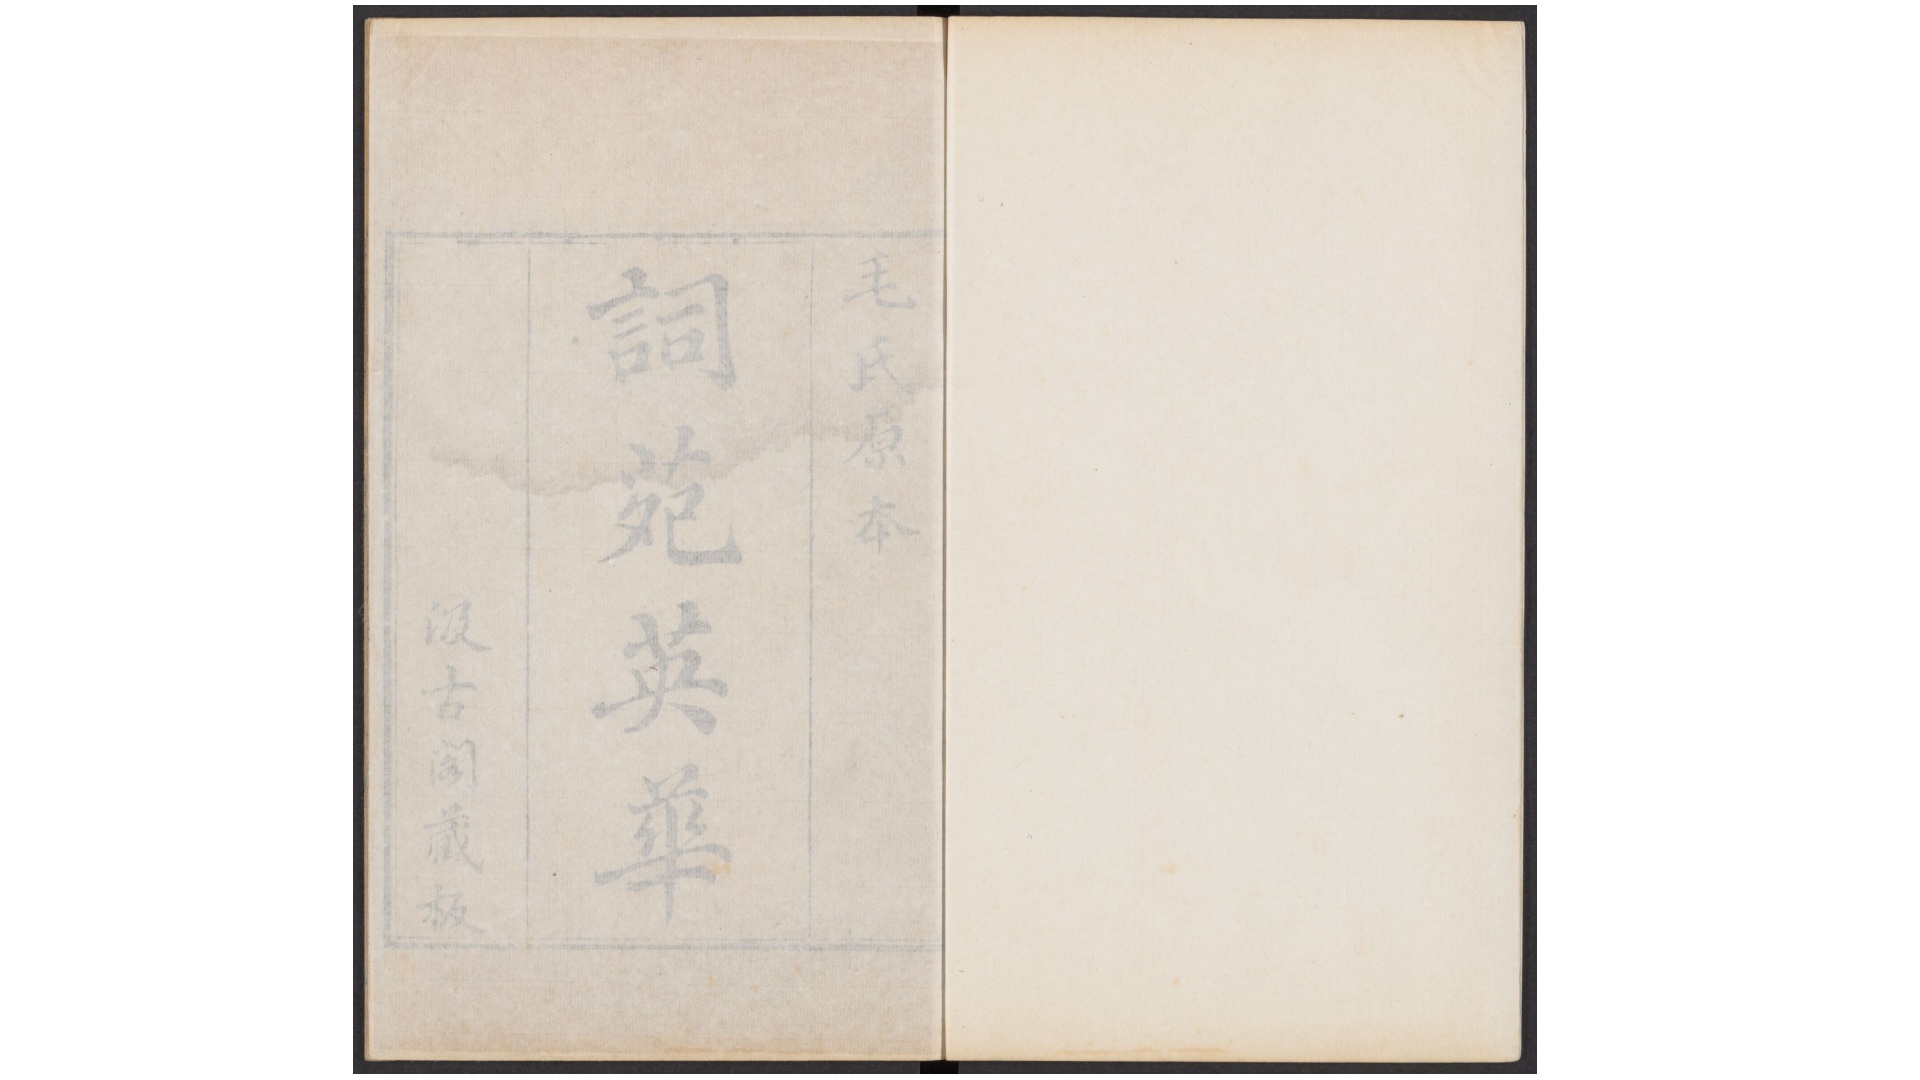 毛氏原本
詞苑英華
汲古閣藏板